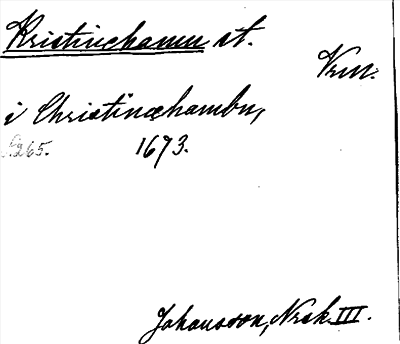 Kristinehamn st.
Vrm.
i Christinæhambn,
S. 265. 1673.
Johansson, Nrsk III.